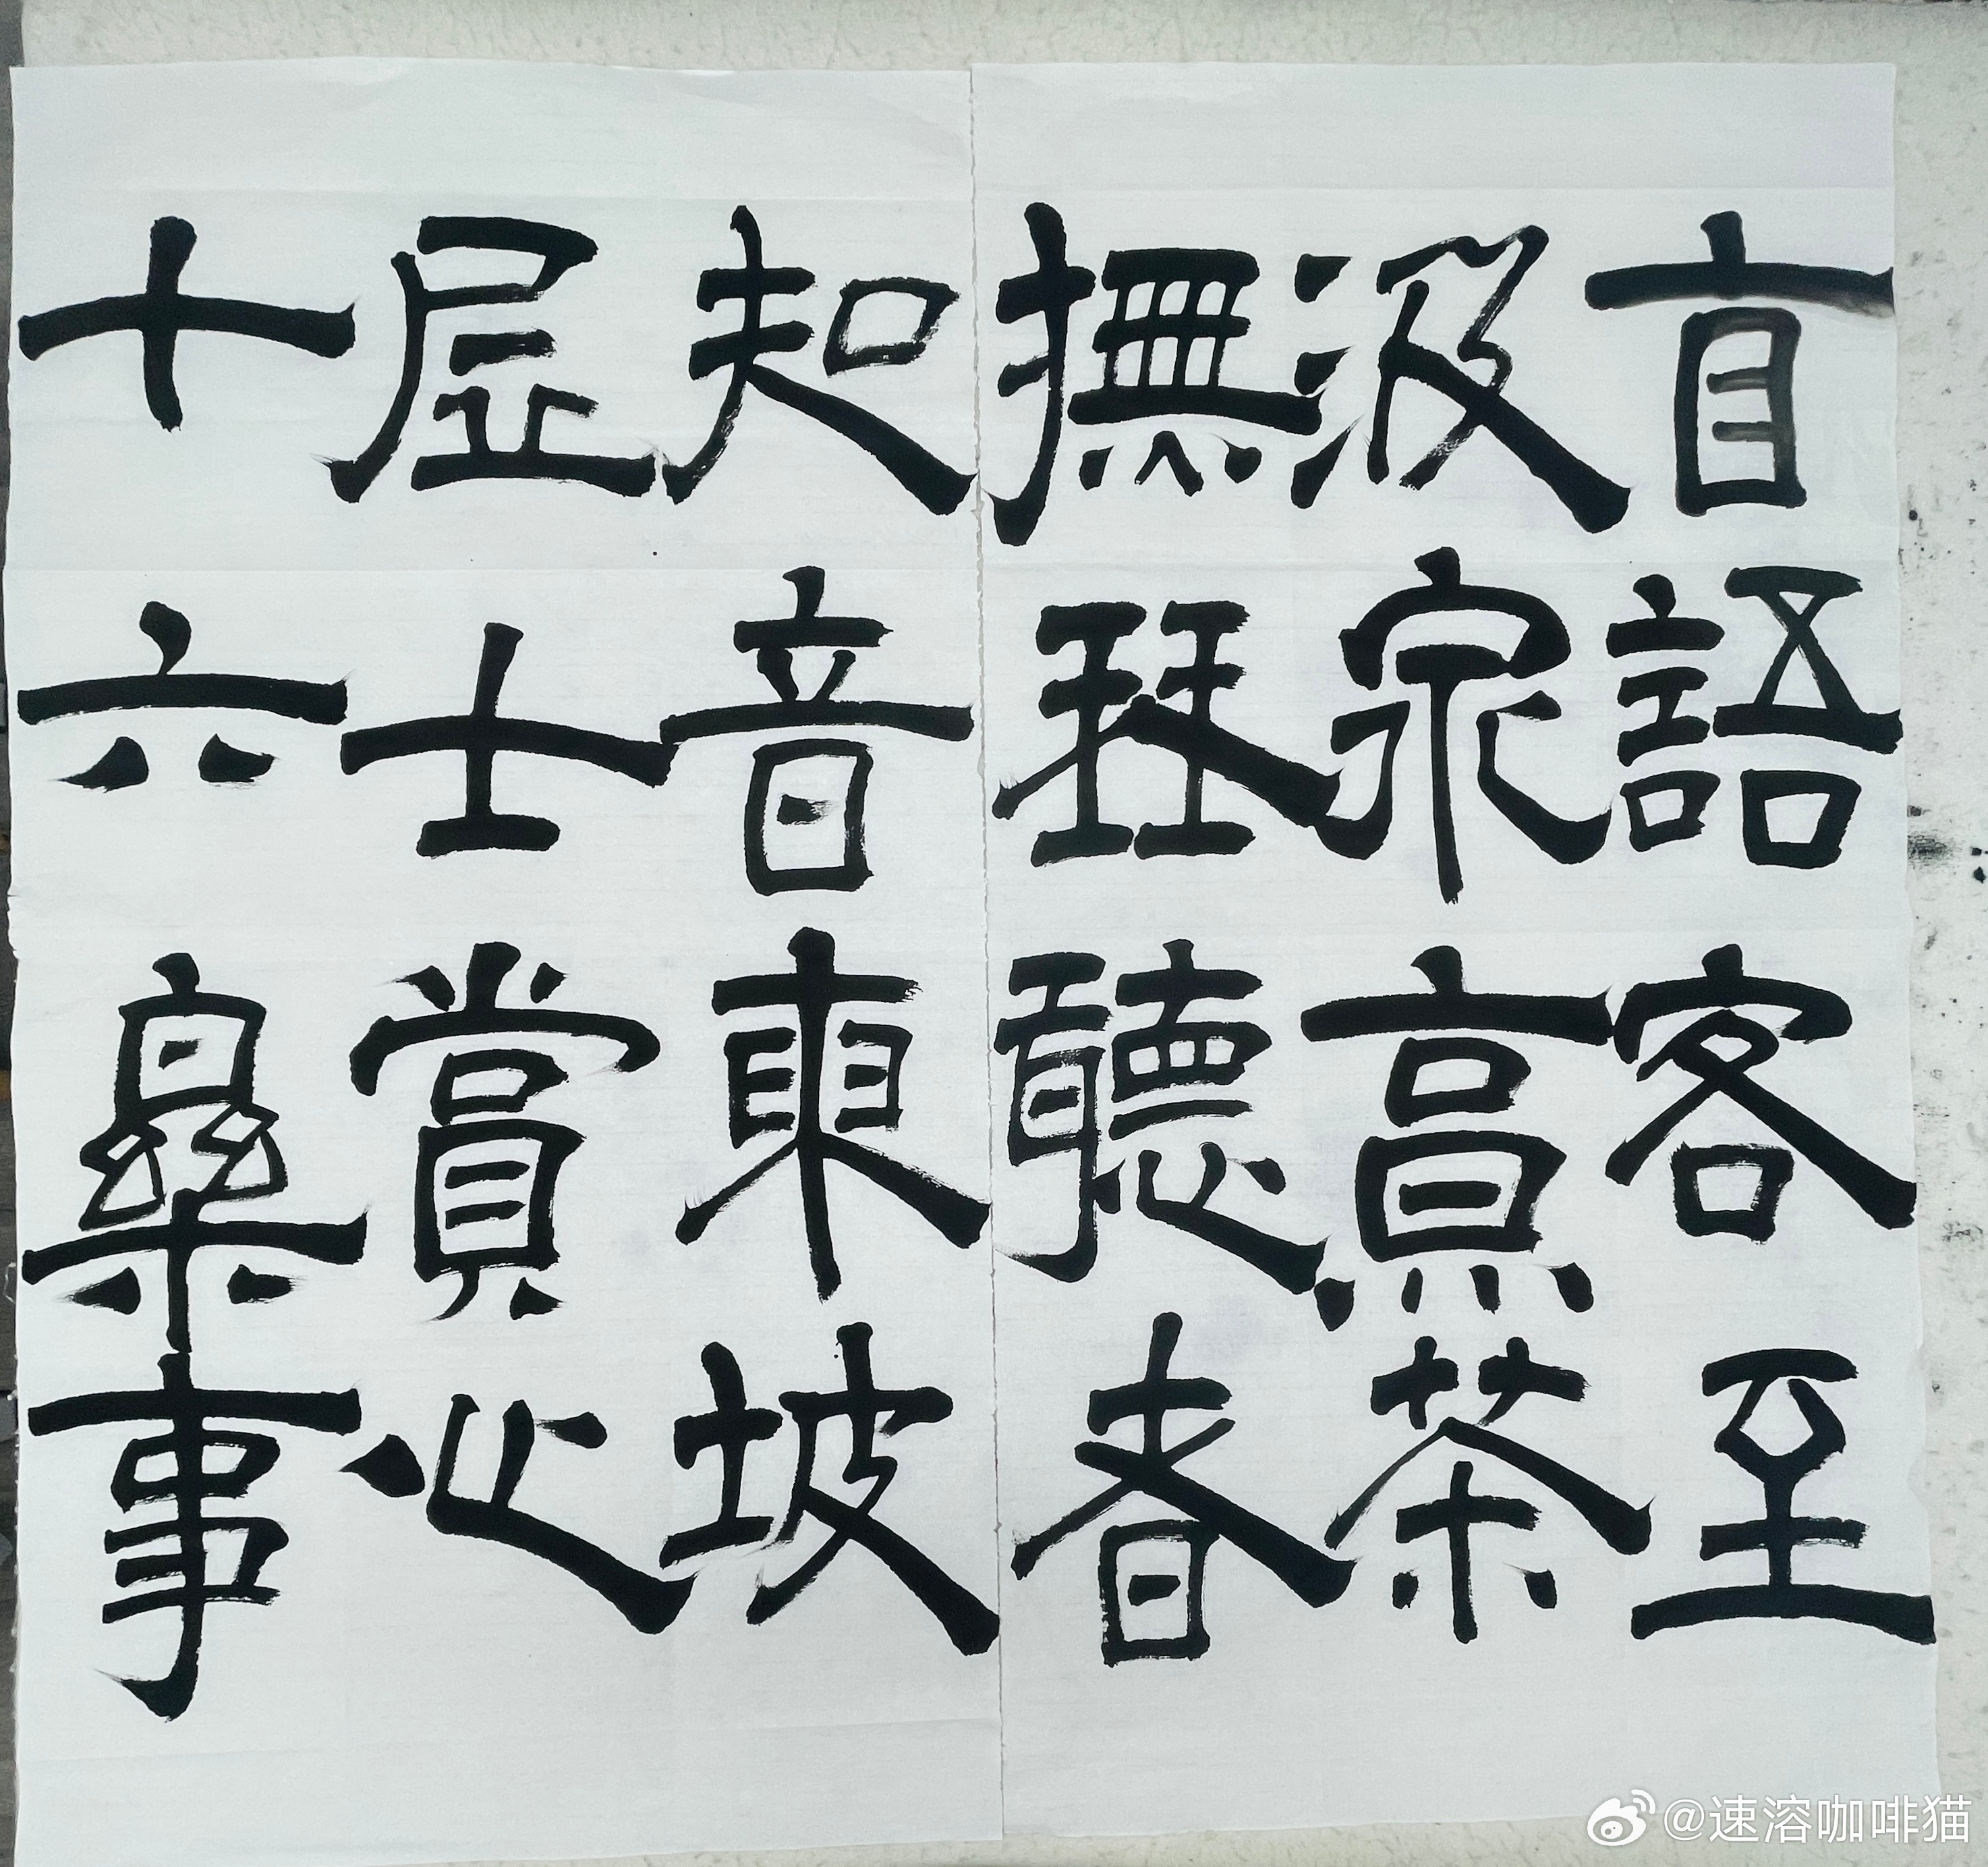 自語客至
汲泉烹茶
撫琴聽者
知音東坡
居士賞心
十六樂事
@速溶咖啡猫